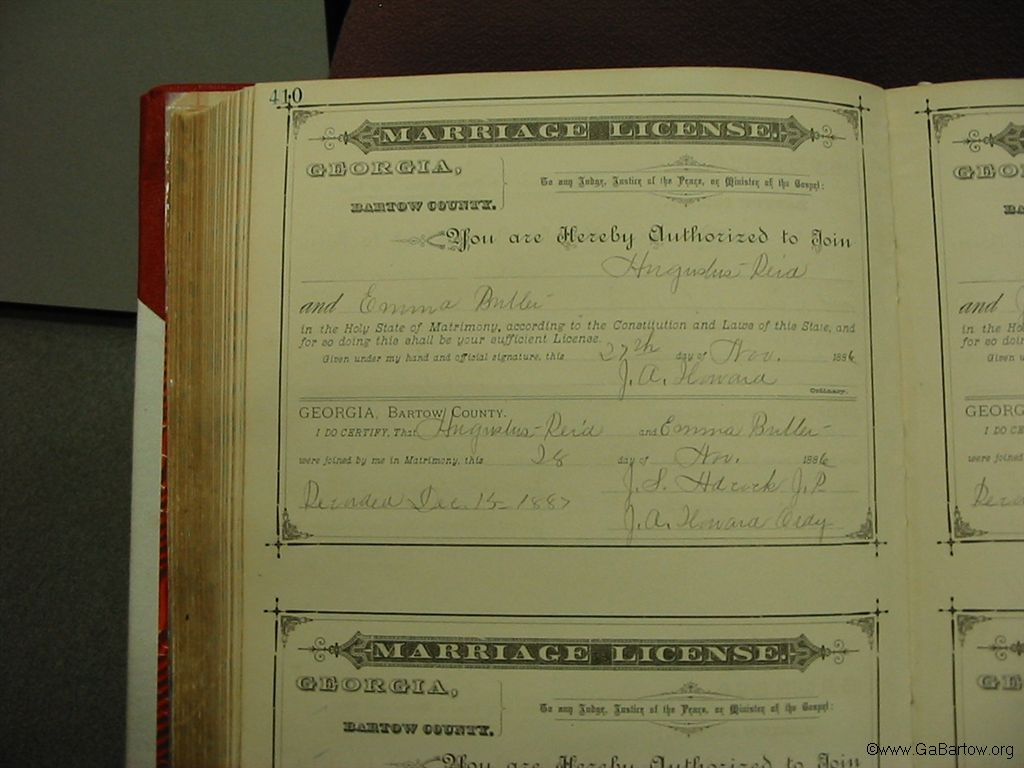 410
MARRIAGE LICENSE.
GEORGIA,
BARTOW COUNTY.
To any Judge, Justice of the Peace, or Minister of the Gospel:
You are Hereby Authorized to Join
Augustus Reid
and Emma Butler
in the Holy State of Matrimony, according to the Constitution and Laws of this State, and
for so doing this shall be your sufficient License.
Given under my hand and official signature, this 27th day of Nov. 1886
J. A. Howard
Ordinary.
GEORGIA, BARTOW COUNTY.
I DO CERTIFY, That Augustus Reid and Emma Butler
were joined by me in Matrimony, this 28 day of Nov. 1886
J. S. J. P.
Recorded Dec. 15 1887
J. A. Howard Ordy
MARRIAGE LICENSE.
GEORGIA,
BARTOW COUNTY.
To any Judge, Justice of the Peace, or Minister of the Gospel:
You are Hereby Authorized to Join
GEO
and
in the Ho
for so doin
Given u
GEORG
I DO CE
were joined
GE
©www.GaBartow.org